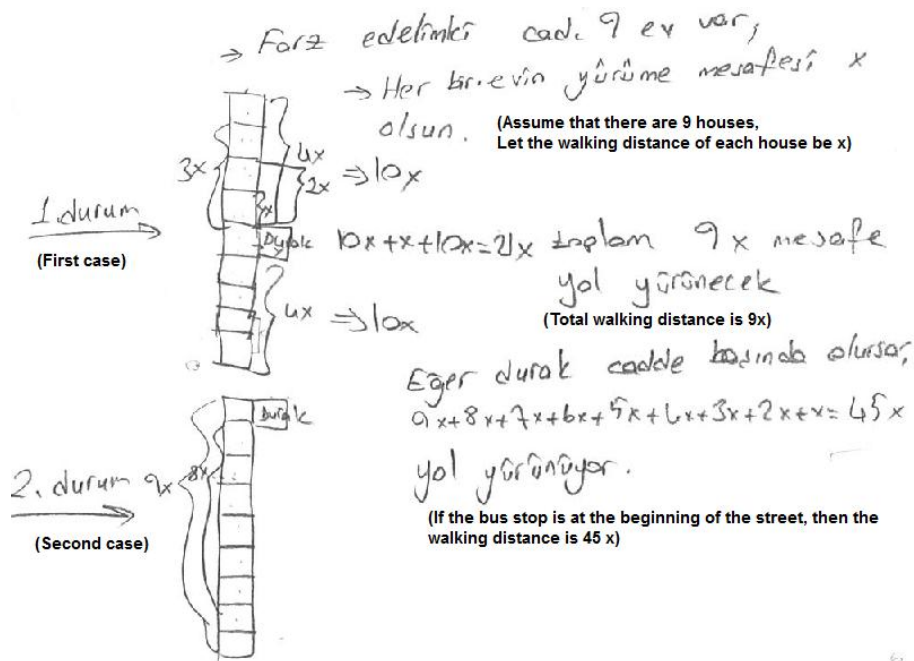 → Farz edelimki cad. 9 ev var,
→ Her bir evin yürüme mesafesi x
olsun.
(Assume that there are 9 houses,
Let the walking distance of each house be x)
3x
4x
2x ⇒ 10x
1. durum
(First case)
Durak
10x+x+10x=21x toplam 9x mesafe
yol yürünecek
(Total walking distance is 9x)
4x ⇒ 10x
Eğer durak cadde başında olursa,
9x+8x+7x+6x+5x+4x+3x+2x+x=45x
yol yürünüyor.
(If the bus stop is at the beginning of the street, then the
walking distance is 45 x)
Durak
2. durum 9x 8x
(Second case)